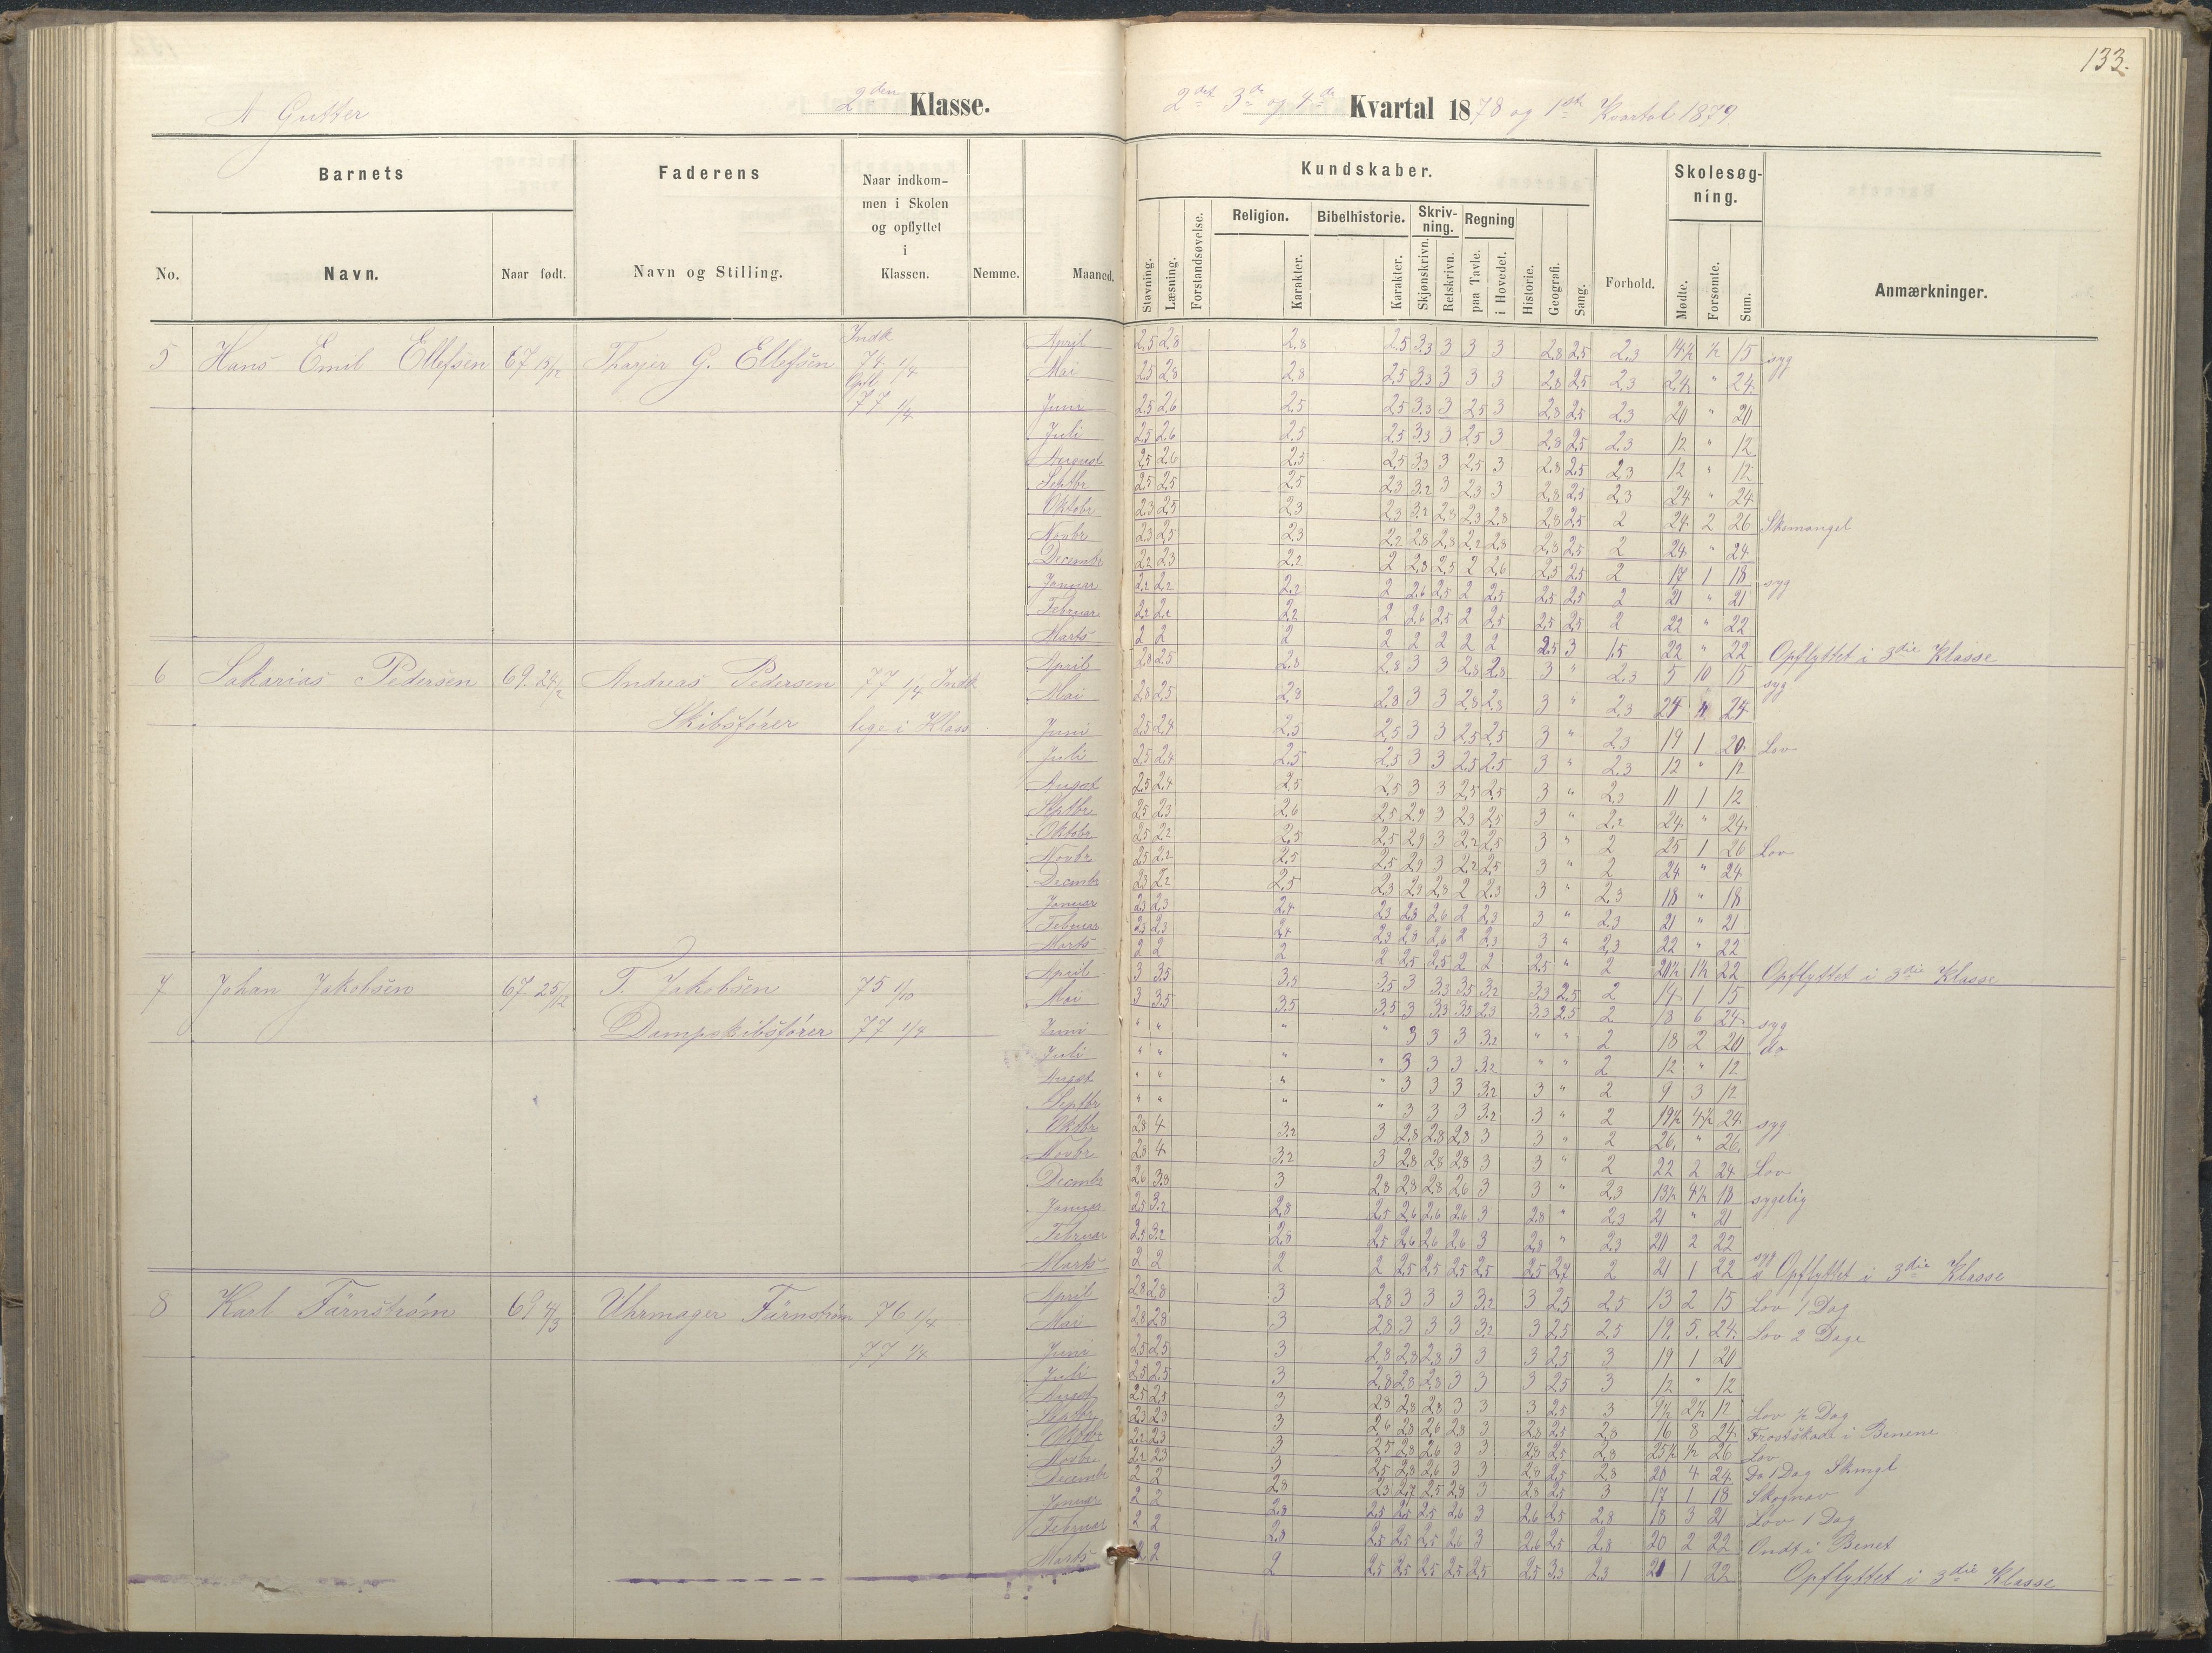 133.
A Gutter
2den Klasse.
2det 3die og 4de Kvartal 1878 og 1ste Kvartal 1879
Barnets
Faderens
Naar indkommen i Skolen og opflyttet i Klassen.
Kundskaber.
Skolesøgning.
No.
Navn.
Naar født.
Navn og Stilling.
Nemme.
Maaned.
Stavning.
Læsning.
Forstandsøvelse.
Religion.
Karakter.
Bibelhistorie.
Karakter.
Skrivning.
Skjønskrivn.
Retskrivn.
Regning
paa Tavle.
i Hovedet.
Historie.
Geografi.
Sang.
Forhold.
Mødte.
Forsømte.
Sum.
Anmærkninger.
5 Hans Emil Ellefsen 67 15/12 Thayer G. Ellefsen Indk 74 1/4 Opfl 77 1/4
April 2,5 2,8 2,8 2,5 3,3 3 3 3 2,8 2,5 2,3 14½ ½ 15 syg
Mai 2,5 2,8 2,8 2,5 3,3 3 3 3 2,8 2,5 2,3 24 " 24
Juni 2,5 2,6 2,5 2,5 3,3 3 2,5 3 2,8 2,5 2,3 20 " 20
Juli 2,5 2,6 2,5 2,5 3,3 3 2,5 3 2,8 2,5 2,3 12 " 12
August 2,5 2,6 2,5 2,5 3,3 3 2,5 3 2,8 2,5 2,3 12 " 12
Septbr 2,5 2,5 2,5 2,3 3,2 3 2,3 3 2,8 2,5 2,3 24 " 24
Oktobr 2,3 2,5 2,3 2,3 3,2 2,8 2,3 2,8 2,8 2,5 2 24 2 26 Skomangel
Novbr 2,3 2,5 2,3 2,2 2,8 2,8 2,2 2,8 2,8 2,5 2 24 " 24
Decembr 2,2 2,3 2,2 2 2,8 2,5 2 2,6 2,5 2,5 2 17 1 18 syg
Januar 2,2 2,2 2,2 2 2,6 2,5 2 2,5 2,5 2,5 2 21 " 21
Februar 2,2 2,2 2,2 2 2,6 2,5 2 2,5 2,5 2,5 2 22 " 22
Marts 2 2 2 2 2 2 2 2 2,5 3 1,5 22 " 22 Opflyttet i 3die Klasse
6 Sakarias Pedersen 69 24/2 Andreas Pedersen Skibsfører 77 1/4 Indk lige i Klass
April 2,8 2,5 2,8 2,8 3 3 2,8 2,8 3 " 2,3 5 10 15 syg
Mai 2,8 2,5 2,8 2,8 3 3 2,8 2,8 3 " 2,3 24 " 24
Juni 2,5 2,4 2,5 2,5 3 3 2,5 2,5 3 " 2,3 19 1 20 Lov
Juli 2,5 2,4 2,5 2,5 3 3 2,5 2,5 3 " 2,3 12 " 12
August 2,5 2,4 2,5 2,5 3 3 2,5 2,5 3 " 2,3 11 1 12
Septbr 2,5 2,3 2,6 2,5 2,9 3 2,3 2,5 3 " 2,2 24 " 24
Oktobr 2,5 2,2 2,5 2,5 2,9 3 2,2 2,5 3 " 2 25 1 26 Lov
Novbr 2,5 2,2 2,5 2,5 2,9 3 2,2 2,5 3 " 2 24 " 24
Decembr 2,3 2,2 2,5 2,3 2,9 2,8 2 2,3 3 " 2,3 18 " 18
Januar 2,3 2,3 2,4 2,3 2,8 2,6 2 2,3 3 " 2,3 21 " 21
Februar 2,3 2,3 2,4 2,3 2,8 2,6 2 2,3 3 " 2,3 22 " 22
Marts 2 2 2 2 2,5 2,5 2 2 2,5 " 2 20½ 1½ 22 Opflyttet i 3die Klasse
7 Johan Jakobsen 67 25/12 T. Jakobsen Dampskibsfører 75 1/10 77 1/4
April 3 3,5 3,5 3,5 3 3,3 3,5 3,2 3,3 2,5 2 14 1 15
Mai 3 3,5 3,5 3,5 3 3,3 3,5 2,3 3,3 2,5 2 18 6 24 syg
Juni " " " " 3 3 3 3,2 " " 2 18 2 20 do
Juli " " " " 3 3 3 3,2 " " 2 12 " 12
August " " " " 3 3 3 3,2 3 " 2 9 3 12
Septbr " " " " 3 3 3 3,2 3 " 2 19½ 4½ 24 syg
Oktbr 2,8 4 3,2 3 2,8 2,8 2,8 3 3 " 2 26 " 26
Novbr 2,8 4 3,2 3 2,8 2,8 2,8 3 3 " 2 22 2 24 Lov
Decembr 2,6 3,3 3 2,8 2,8 2,8 2,6 3 3 " 2,3 13½ 4½ 18 sygelig
Januar 2,5 3,2 2,8 2,5 2,6 2,6 2,6 3 2,8 " 2,3 21 " 21
Februar 2,5 3,2 2,8 2,5 2,6 2,6 2,6 3 2,8 " 2,3 20 2 22 syg
Marts 2 2 2 2 2,5 2,5 2,5 2,5 2,5 2,7 2 21 1 22 Opflyttet i 3die Klasse
8 Karl Färnstrøm 69 4/3 Uhrmager Färnstrøm 76 1/4 77 1/4
April 2,8 2,8 3 2,8 3 3 3 3,2 3 2,5 2,5 13 2 15 Lov 1 Dag
Mai 2,8 2,8 3 2,8 3 3 3 3,2 3 2,5 2,5 19 5 24 Lov 2 Dage
Juni 2,5 2,5 3 2,8 2,8 2,8 3 3 3 2,5 3 19 1 20
Juli 2,5 2,5 3 2,8 2,8 2,8 3 3 3 2,5 3 12 " 12
August 2,5 2,5 3 2,8 2,8 2,8 3 3 3 2,5 3 9½ 2½ 12 Lov ½ Dag
Septbr 2,3 2,3 3 2,6 2,8 2,6 2,8 3 2,8 2,5 2,8 16 8 24 Frostskade i Benene
Oktobr 2,2 2,3 3 2,5 2,8 2,6 3 3 2,8 2,5 2,8 25½ ½ 26 Lov
Novbr 2,2 2,3 3 2,5 2,8 2,6 3 3 2,8 2,5 2,8 20 4 24 Do 1 Dag Skmgl
Decembr 2 2 2,8 2,3 2,7 2,5 2,8 3 2,8 2,5 3 17 1 18
Januar 2 2 2,8 2,5 2,5 2,5 2,6 3 2,6 2,5 2,8 18 3 21 Lov 1 Dag
Februar 2 2 2,8 2,5 2,5 2,5 2,6 3 2,6 2,5 2,8 20 2 22 Ondt i Benet
Marts 2 2 2 2,5 2,5 2,5 2,5 2,5 2,5 3,3 2,3 21 1 22 Opflyttet i 3die Klasse